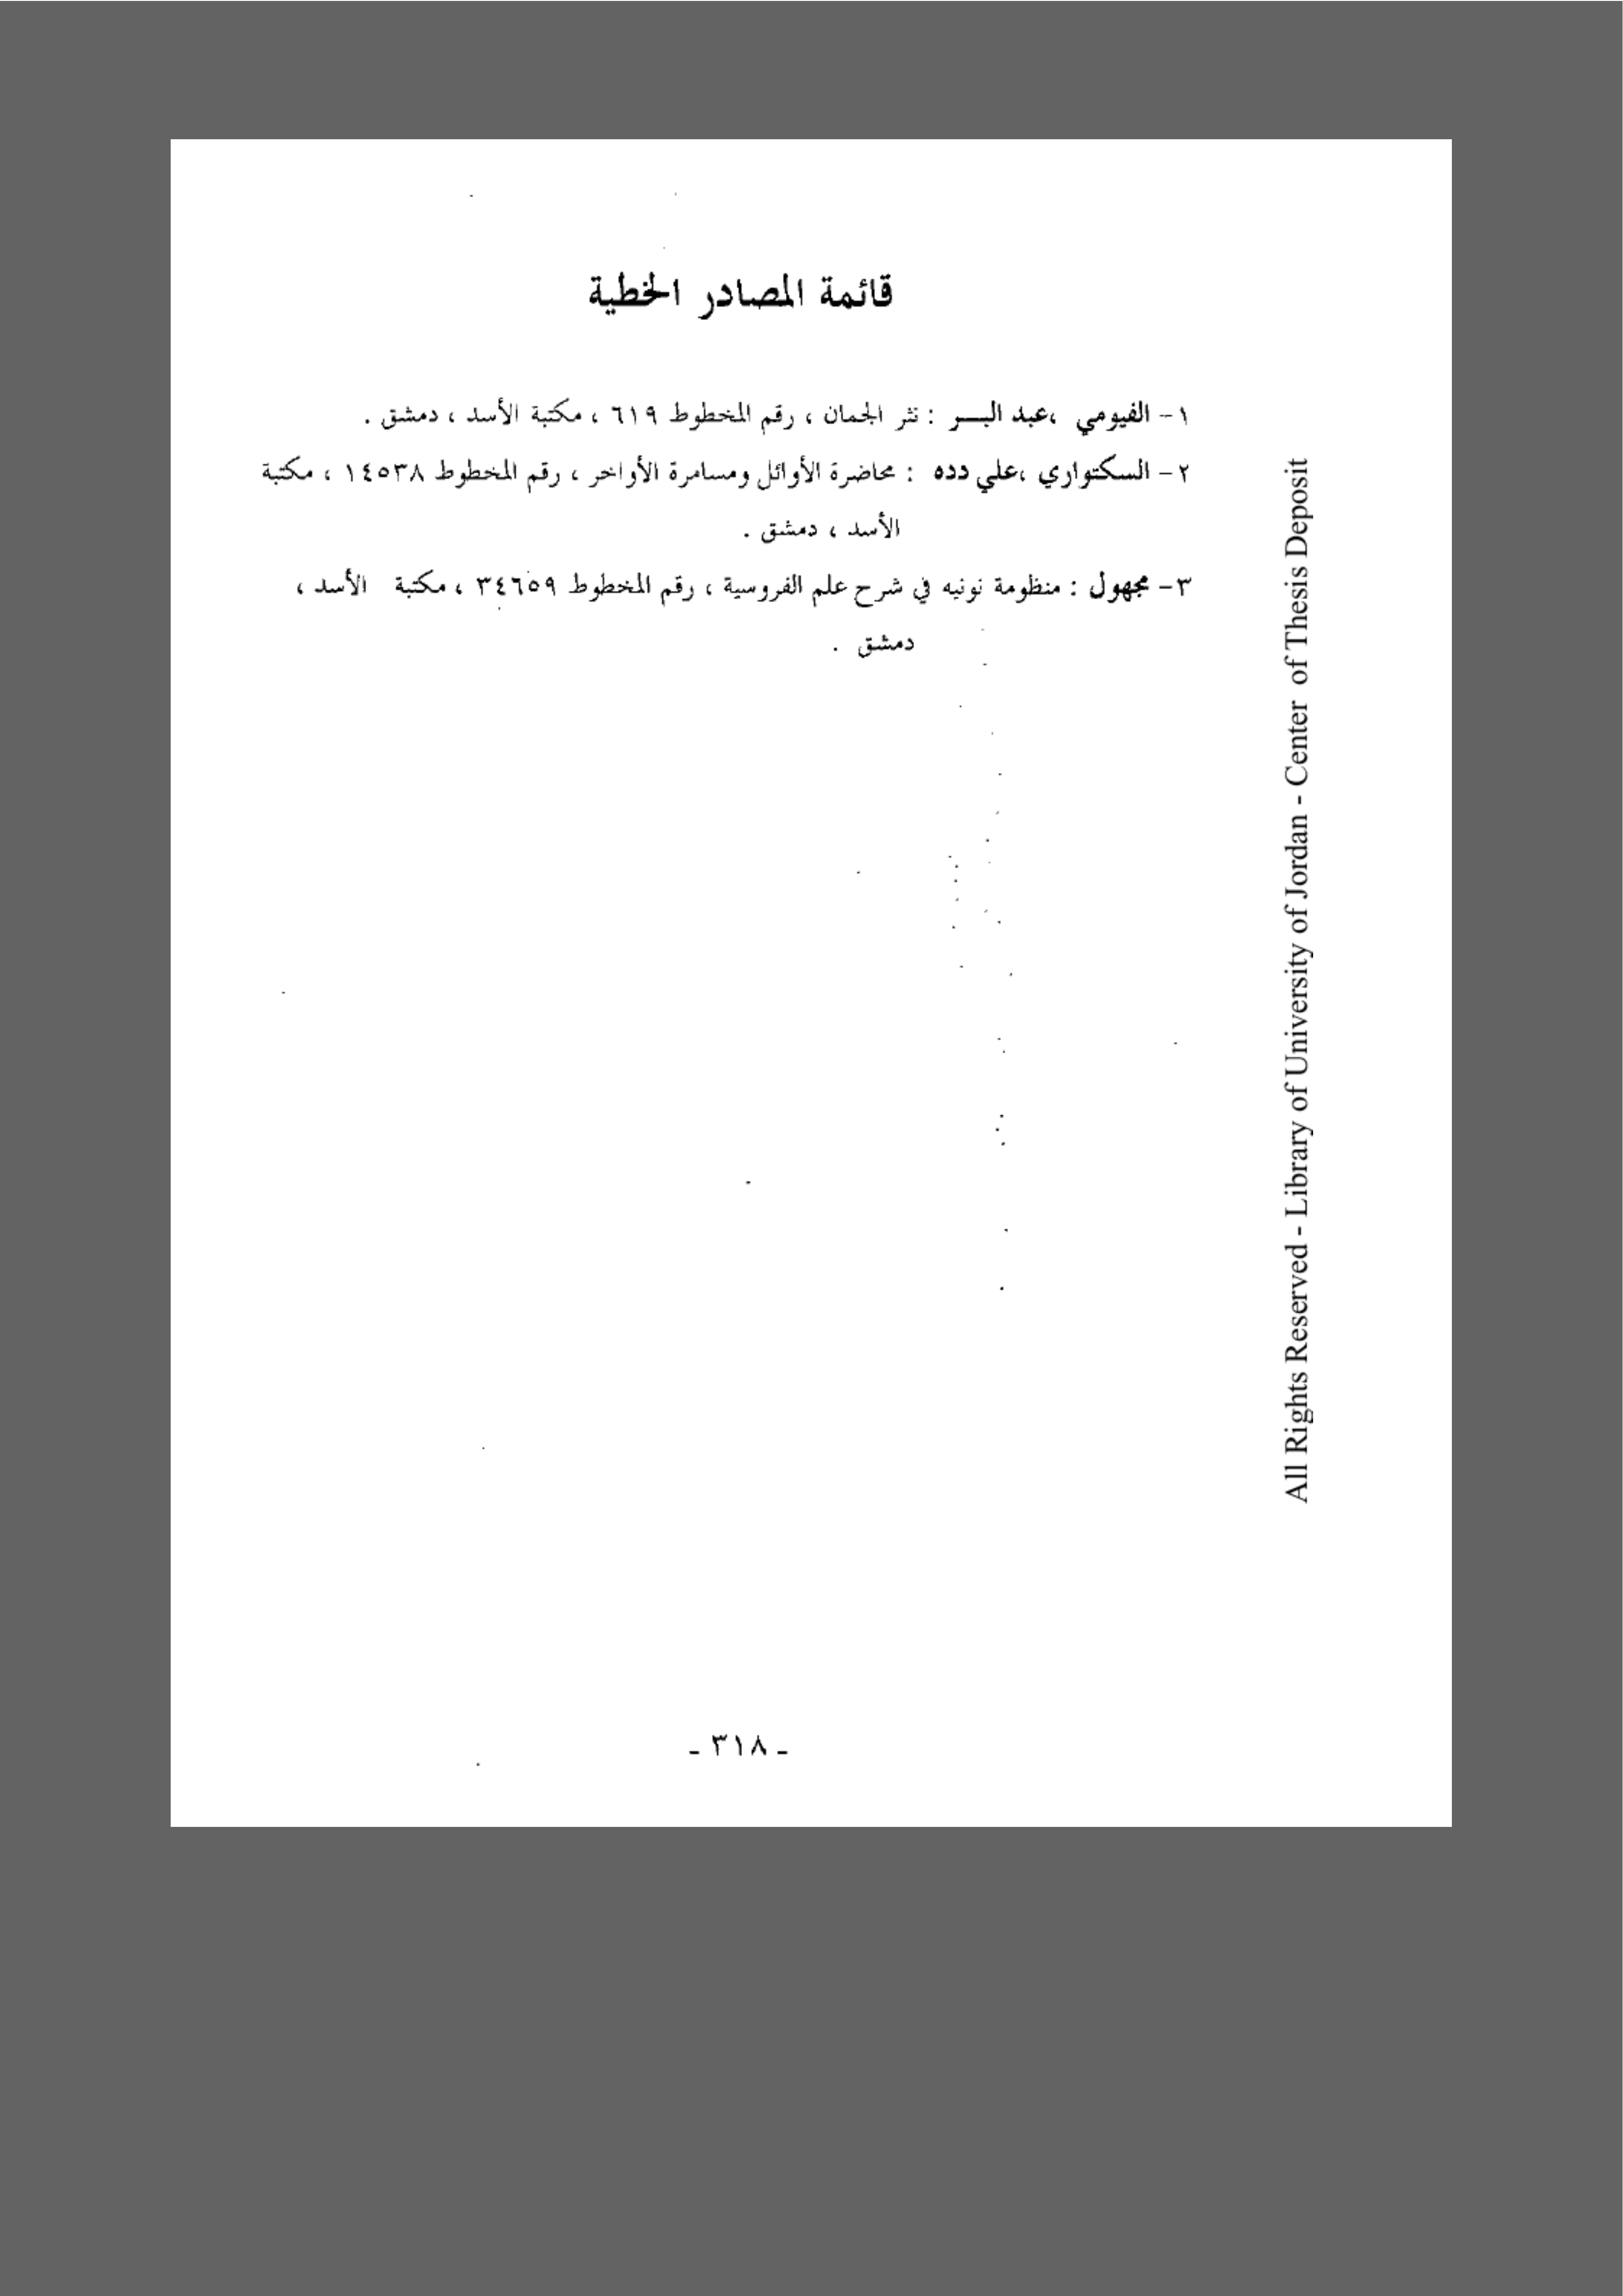 قائمة المصادر الخطية
١- الفيومي ،عبد البـــر : نثر الجمان ، رقم المخطوط ٦١٩ ، مكتبة الأسد ، دمشق .
٢- السكتواري ،علي دده : محاضرة الأوائل ومسامرة الأواخر ، رقم المخطوط ١٤٥٣٨ ، مكتبة
الأسد ، دمشق .
٣- مجهول : منظومة نونيه في شرح علم الفروسية ، رقم المخطوط ٣٤٦٥٩ ، مكتبة الأسد ،
دمشق .
- ٣١٨ -
All Rights Reserved - Library of University of Jordan - Center of Thesis Deposit